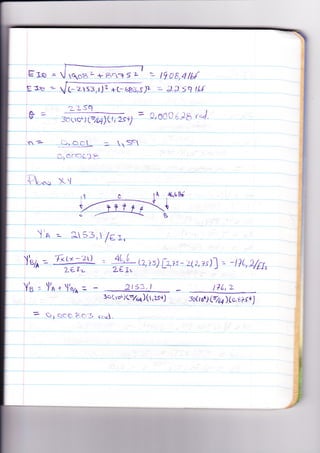 EIθ = √(1908² + 8775²) = 1908,4 lbf
EIθ = √((-2153,1)² + (-682,5)²) = 2259 lbf
θ = 2259 / 30(10⁶)(π/64)(1,25⁴) = 0,000628 rad.
n = 0,001 / 0,000628 = 1,59
Plano XY
C A 46,6 lbf
B
Y'A = 2153,1/EI₁
Y'B/A = Fx(x-2l) / 2EI₂ = 46,6 / 2EI₂ (2,75)[2,75-2(2,75)] = -176,2/EI₂
Y'B = Y'A + Y'B/A = - 2153,1 / 30(10⁶)(π/64)(1,25⁴) - 176,2 / 30(10⁶)(π/64)(0,875⁴)
= 0,000803 rad.